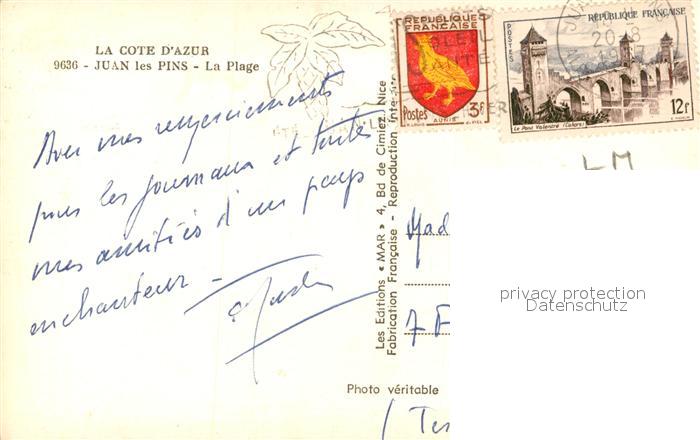 LA COTE D'AZUR
9636 - JUAN les PINS - La Plage
Avec mes remerciements
pour les journaux et toute
mes amitiés d'un pays
enchanteur -
RÉPUBLIQUE FRANÇAISE
Postes 3F
AUNIS
RÉPUBLIQUE FRANÇAISE
POSTES
12F
Le Pont Valentré (Cahors)
LM
Les Editions « MAR » 4, Bd de Cimiez, Nice
Fabrication Française - Reproduction Interdite
Mad
7 F
Photo véritable
privacy protection
Datenschutz